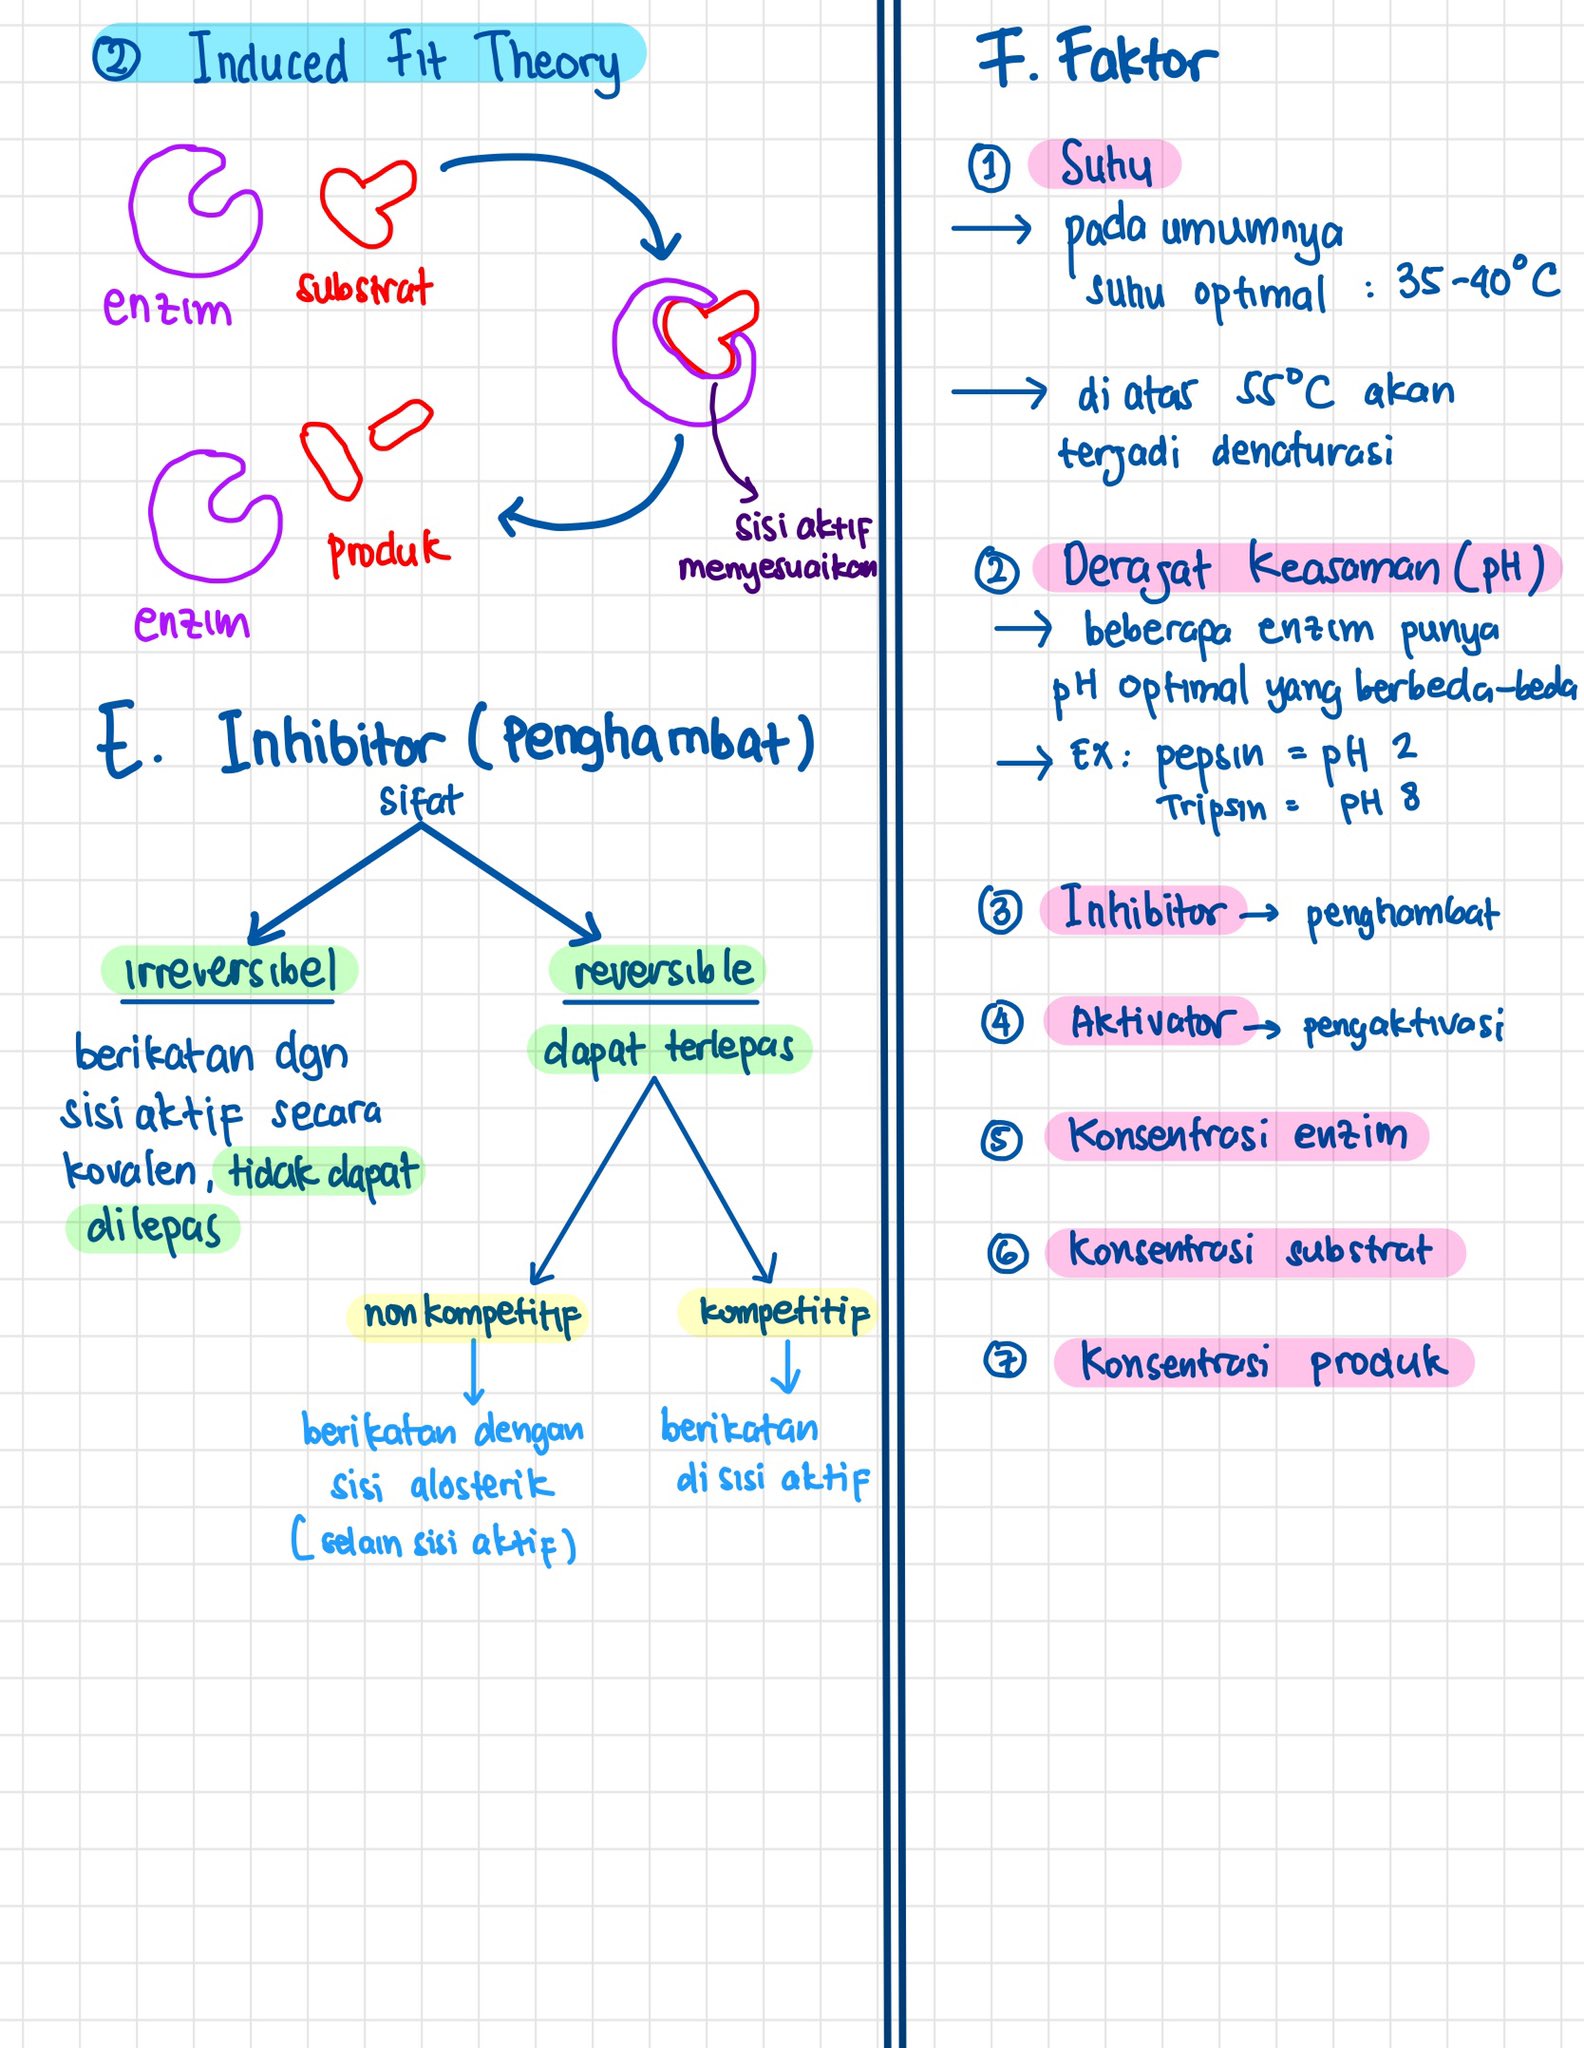 ② Induced Fit Theory
enzim
substrat
sisi aktif
menyesuaikan
produk
enzim
E. Inhibitor (Penghambat)
sifat
irreversibel
berikatan dgn
sisi aktif secara
kovalen, tidak dapat
dilepas
reversible
dapat terlepas
non kompetitif
berikatan dengan
sisi alosterik
(selain sisi aktif)
kompetitif
berikatan
di sisi aktif
F. Faktor
① Suhu
→ pada umumnya
suhu optimal : 35-40°C
→ di atas 55°C akan
terjadi denaturasi
② Derajat Keasaman (pH)
→ beberapa enzim punya
pH optimal yang berbeda-beda
→ Ex: pepsin = pH 2
Tripsin = pH 8
③ Inhibitor → penghambat
④ Aktivator → pengaktivasi
⑤ Konsentrasi enzim
⑥ Konsentrasi substrat
⑦ Konsentrasi produk